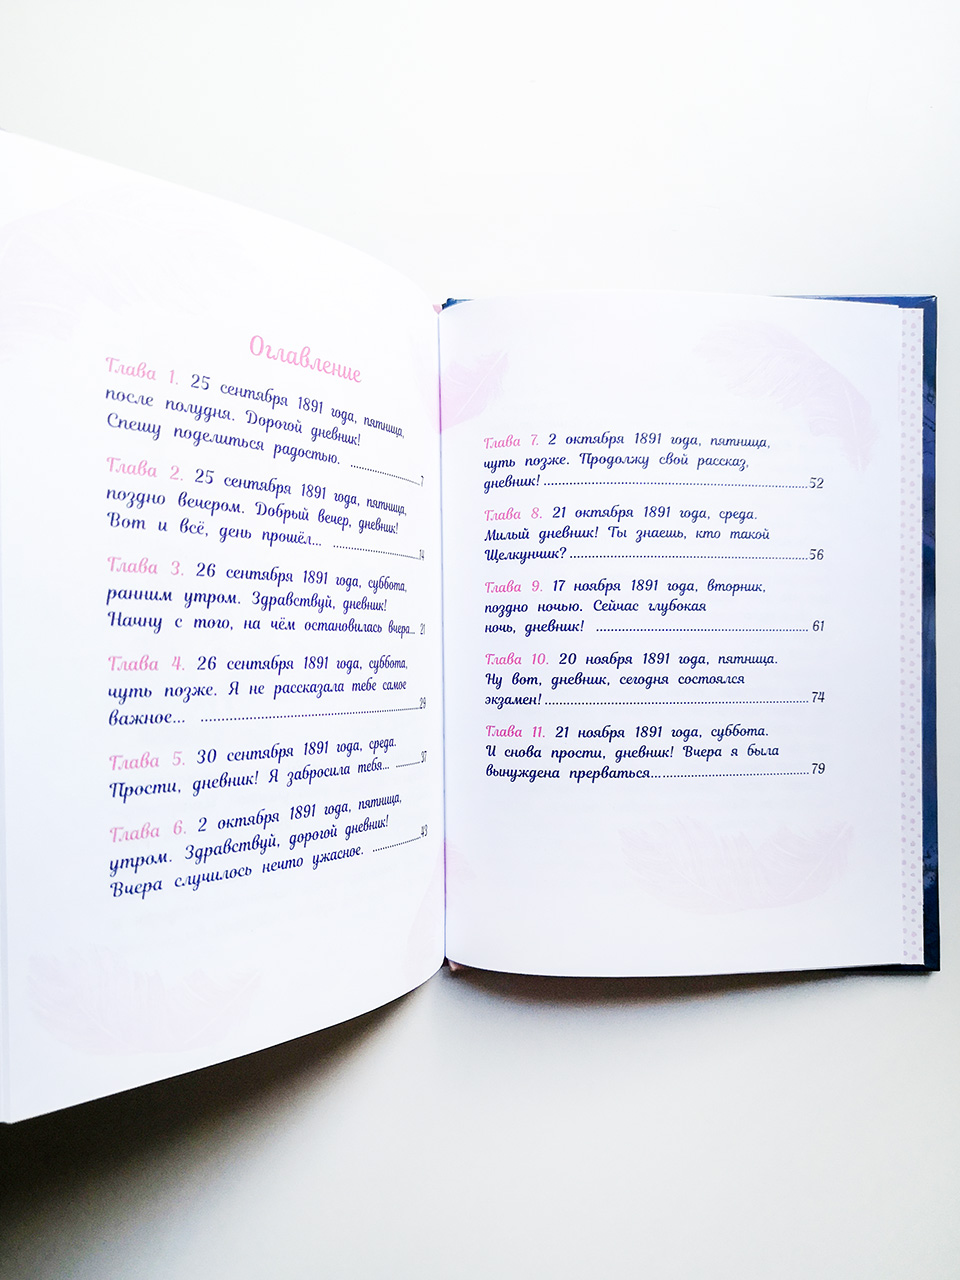 Оглавление
Глава 1. 25 сентября 1891 года, пятница,
после полудня. Дорогой дневник!
Спешу поделиться радостью. ........................7
Глава 2. 25 сентября 1891 года, пятница,
поздно вечером. Добрый вечер, дневник!
Вот и всё, день прошёл... ........................14
Глава 3. 26 сентября 1891 года, суббота,
ранним утром. Здравствуй, дневник!
Начну с того, на чём остановилась вчера... 21
Глава 4. 26 сентября 1891 года, суббота,
чуть позже. Я не рассказала тебе самое
важное... ........................29
Глава 5. 30 сентября 1891 года, среда.
Прости, дневник! Я забросила тебя... ........37
Глава 6. 2 октября 1891 года, пятница,
утром. Здравствуй, дорогой дневник!
Вчера случилось нечто ужасное. ............43
Глава 7. 2 октября 1891 года, пятница,
чуть позже. Продолжу свой рассказ,
дневник!........................52
Глава 8. 21 октября 1891 года, среда.
Милый дневник! Ты знаешь, кто такой
Щелкунчик?........................56
Глава 9. 17 ноября 1891 года, вторник,
поздно ночью. Сейчас глубокая
ночь, дневник! ........................61
Глава 10. 20 ноября 1891 года, пятница.
Ну вот, дневник, сегодня состоялся
экзамен!........................74
Глава 11. 21 ноября 1891 года, суббота.
И снова прости, дневник! Вчера я была
вынуждена прерваться........................79